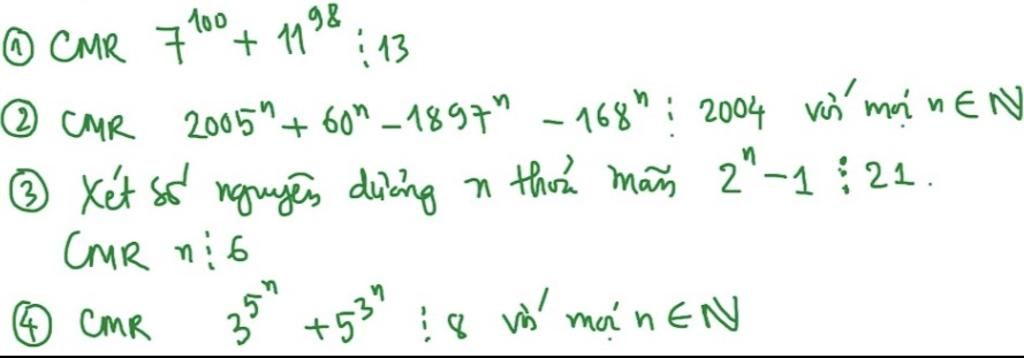 ① CMR 7¹⁰⁰ + 11⁹⁸ ⋮ 13
② CMR 2005ⁿ + 60ⁿ - 1897ⁿ - 168ⁿ ⋮ 2004 với mọi n ∈ ℕ
③ Xét số nguyên dương n thoả mãn 2ⁿ - 1 ⋮ 21.
CMR n ⋮ 6
④ CMR 3^5^n + 5^3^n ⋮ 8 với mọi n ∈ ℕ